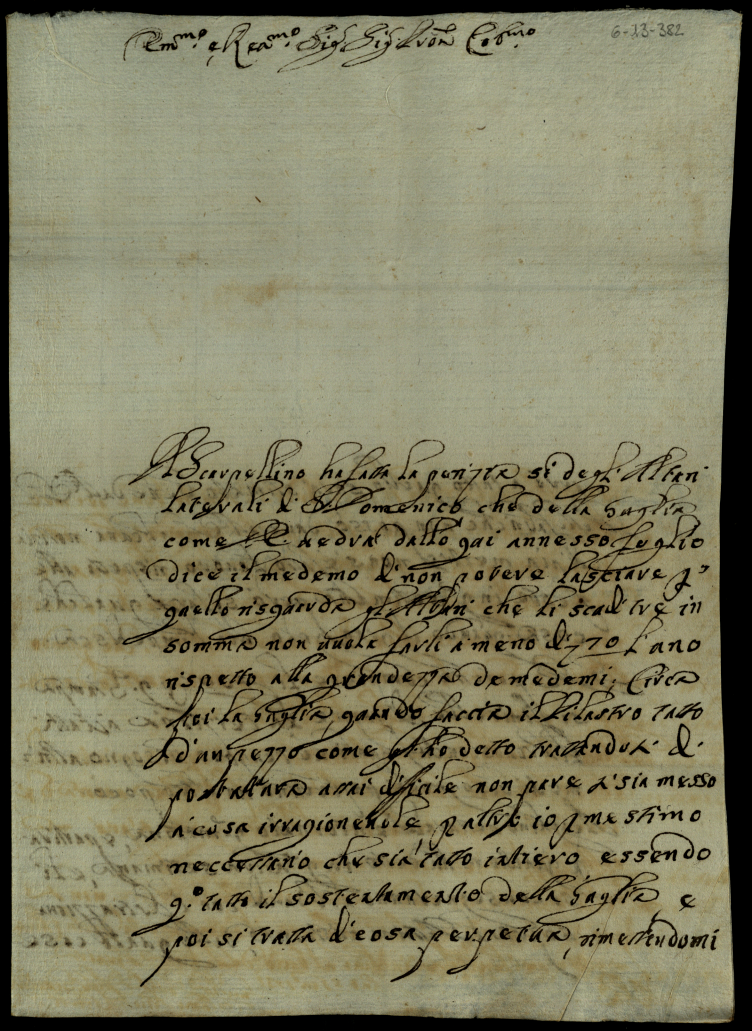 Em.mo e Rea.mo Sig.r Sig.r Pron Col.mo
6-13-382
Il Scarpellino ha fatta la perizia si degli Altari
laterali di S. Domenico che della Guglia
come V.E. uedrà dallo qui annesso foglio
dice il medemo di non potere lasciare p.
quello risguarda gl'Altari che li scudi tre in
somma non uuole farli a meno di 70 l'uno
rispetto alla grandezza de medemi; Circa
poi la Guglia, quando faccia il Pilastro tutto
d'un pezzo come gl'ho detto trattandosi di
portatura assai dificile non pare si sia messo
à cosa irragioneuole p altro io p me stimo
neccessario che sia tutto intiero essendo
q.o tutto il sostentamento della Guglia e
poi si tratta di cosa perpetua, rimettendomi